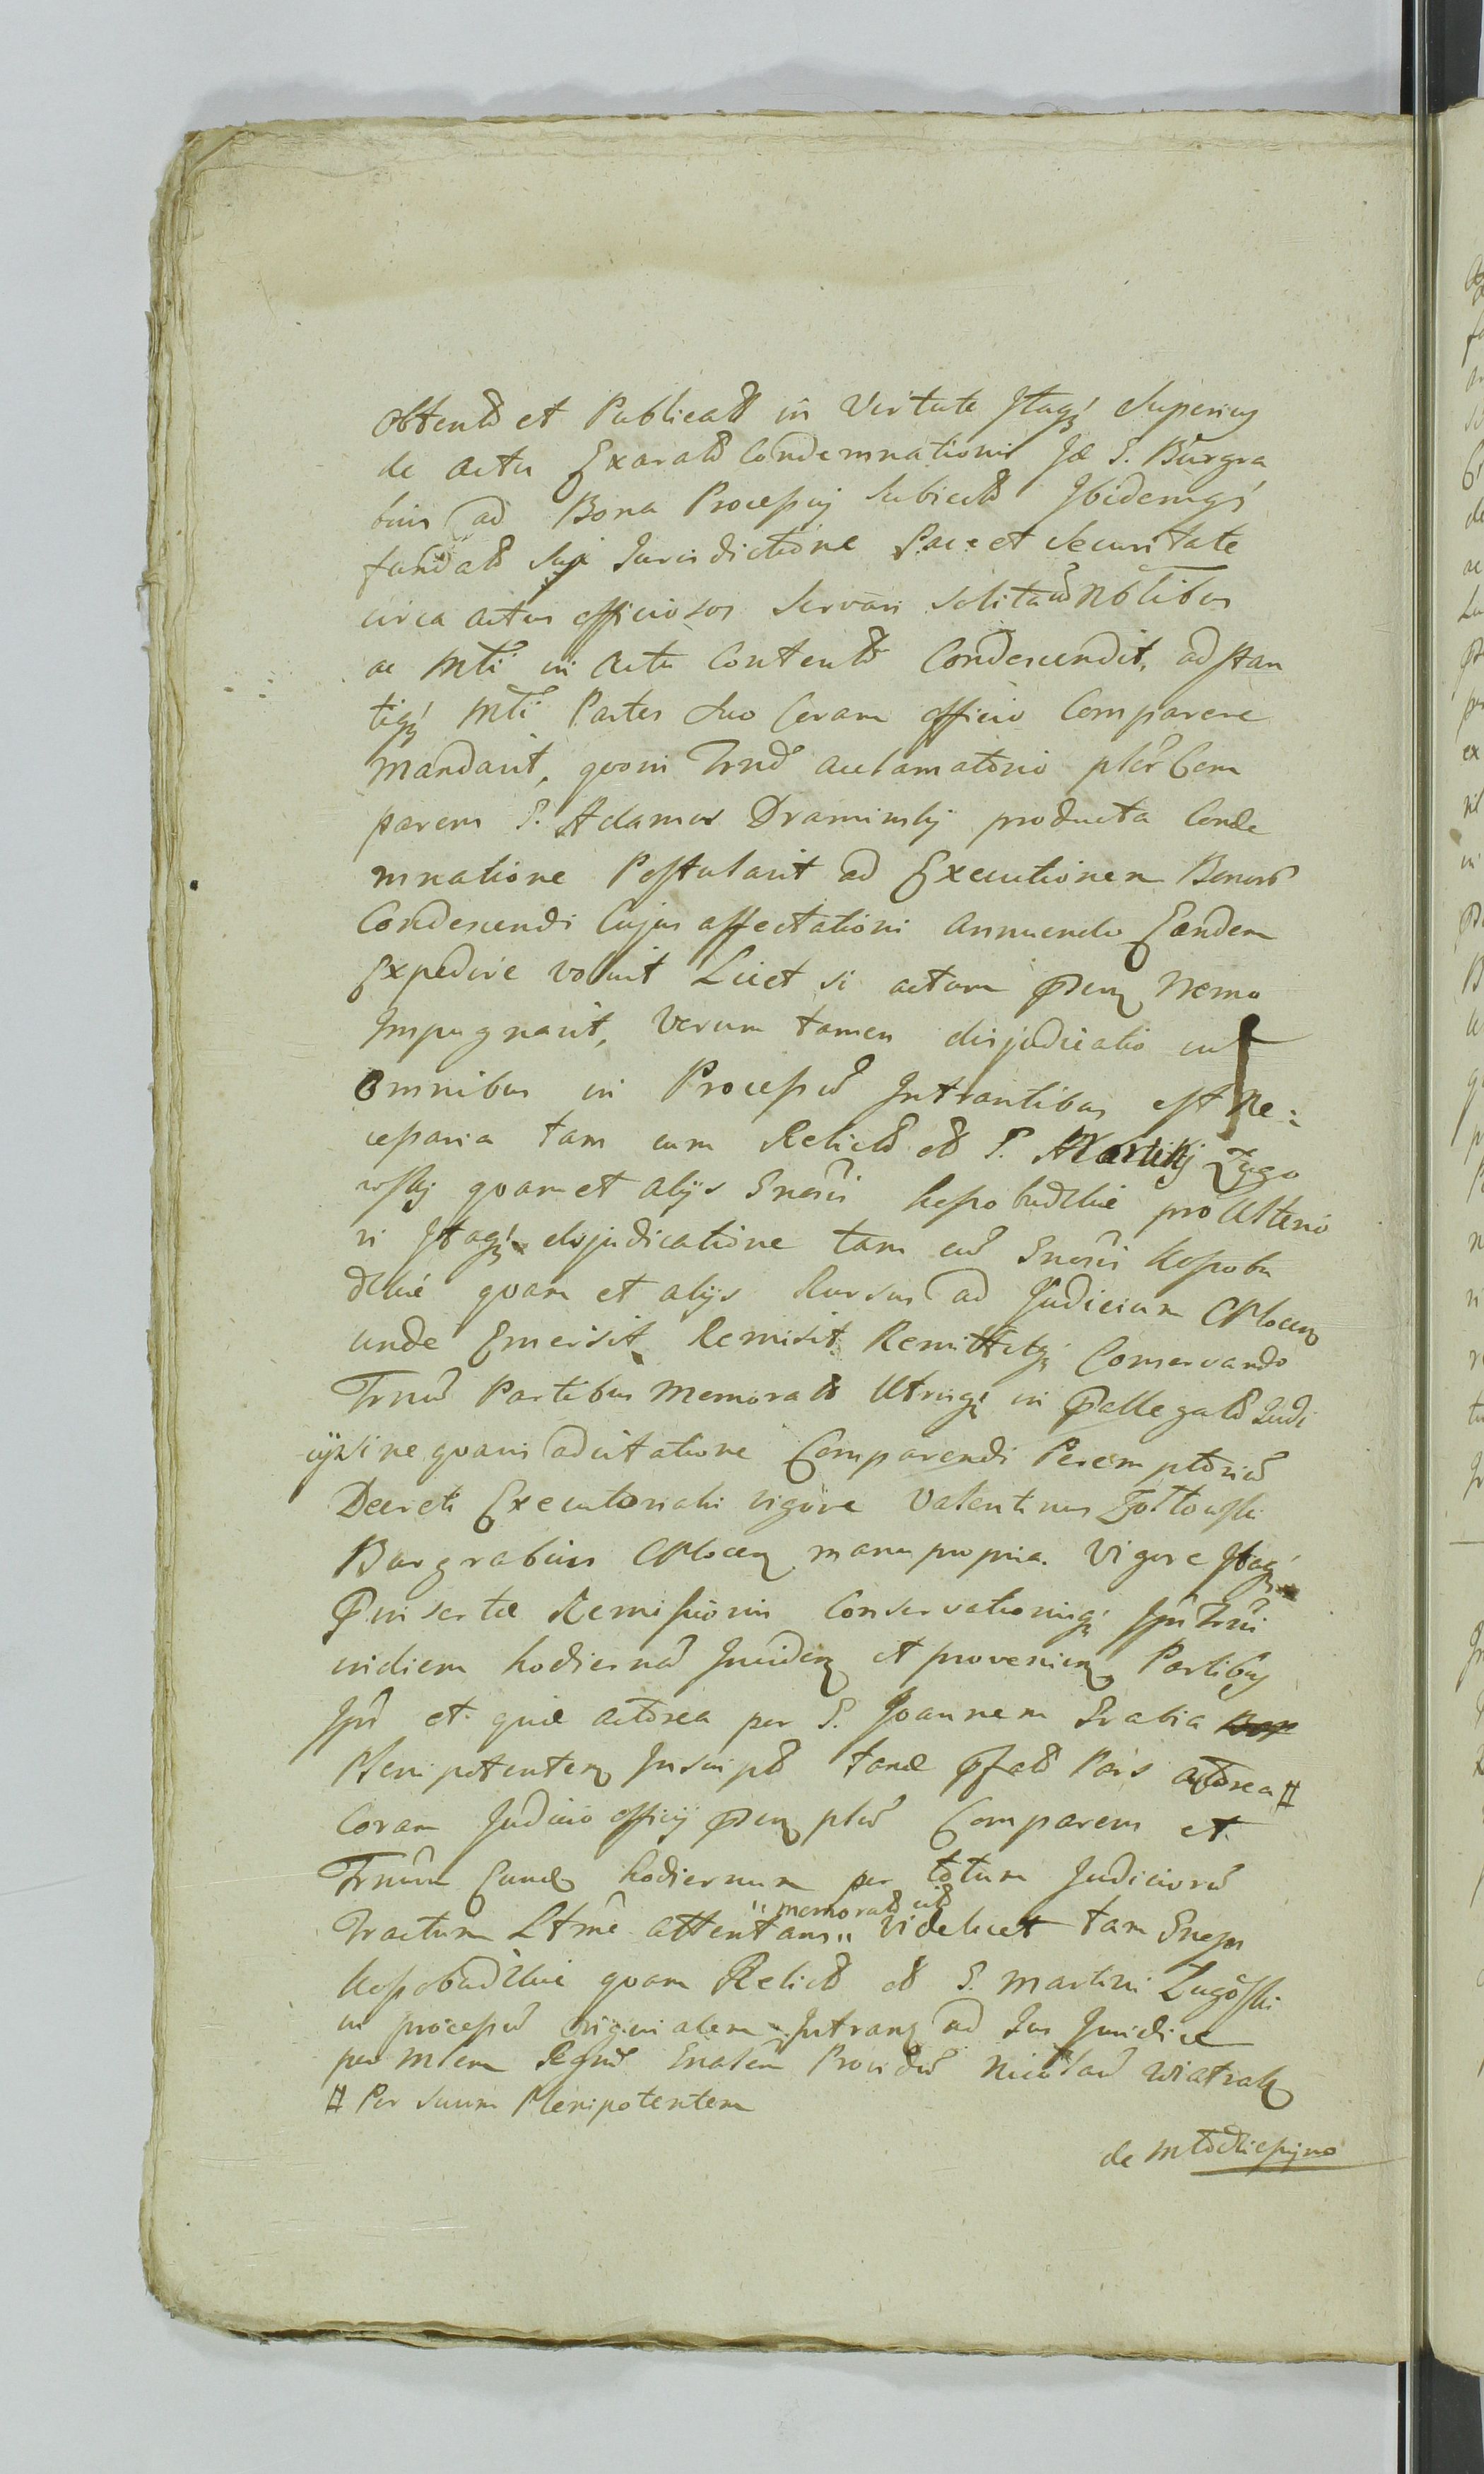 obtent et Publicat in Virtute Itaq Superius
de actu Exarat Condemnationis Idē G. Burgra
bius ad Bona Processus Subiect Ibidemq
fundat sui Jurisdictione Pace et Securitate
circa actus officiosos Servari Solita Nobilibus
ac Mti in actu Content Condescendit, adstan
tiq Mti Partes Suo Coram officio Comparere
Mandavit, quoniam Trnō acclamatorio pltr Com
parens G. Adamus Draminsky producta Conde
mnatione Postulavit ad Executionem Bonorū
Condescendi Cujus affectationi annuendo Eandem
Expedire voluit Licet si actum pden Nemo
Impugnavit, Verum tamen disjudicatio cū
Omnibus in Processū Intrantibus est Ne:
cessaria tam cum Relict ol G. Martinj Zugo
wskj quam et alijs pro Ulterio
ri Itaq disjudicatione tam cū
quam et alijs Rursus ad Judicium CPlocen
unde Emersit, Remisit Remittitq Conservando
Trnū Partibus Memorat Utrisq in pallegat Judi
cijs sine quavis adcitatione Comparendi Peremptoriū
Decreti Executorialis vigore Valentinus Zołtowski
Burgrabius CPlocen manu propria. Vigore Itaq
pinsertæ Remissionis Conservationisq Ipsi Trni
indiem hodiernā Inciden et provenien Partibus
Ipsi et quidē actorea per G. Joannem Grabia
Plenipotentem Inscript tandē pfat Pars actorea #
Coram Judicio officij pden pltr Comparens et
Trnum Eund hodiernum per totum Judiciorū
"memorat cit
Tractum Ltme attentans" videlicet tam
quam Relict ol G. Martini Zugowski
in processū originalem Intran ad Jus Juridice
per Mlem Regni Gnalem Providū Nicolaū Wiatrak
# Per suum Plenipotentem
de